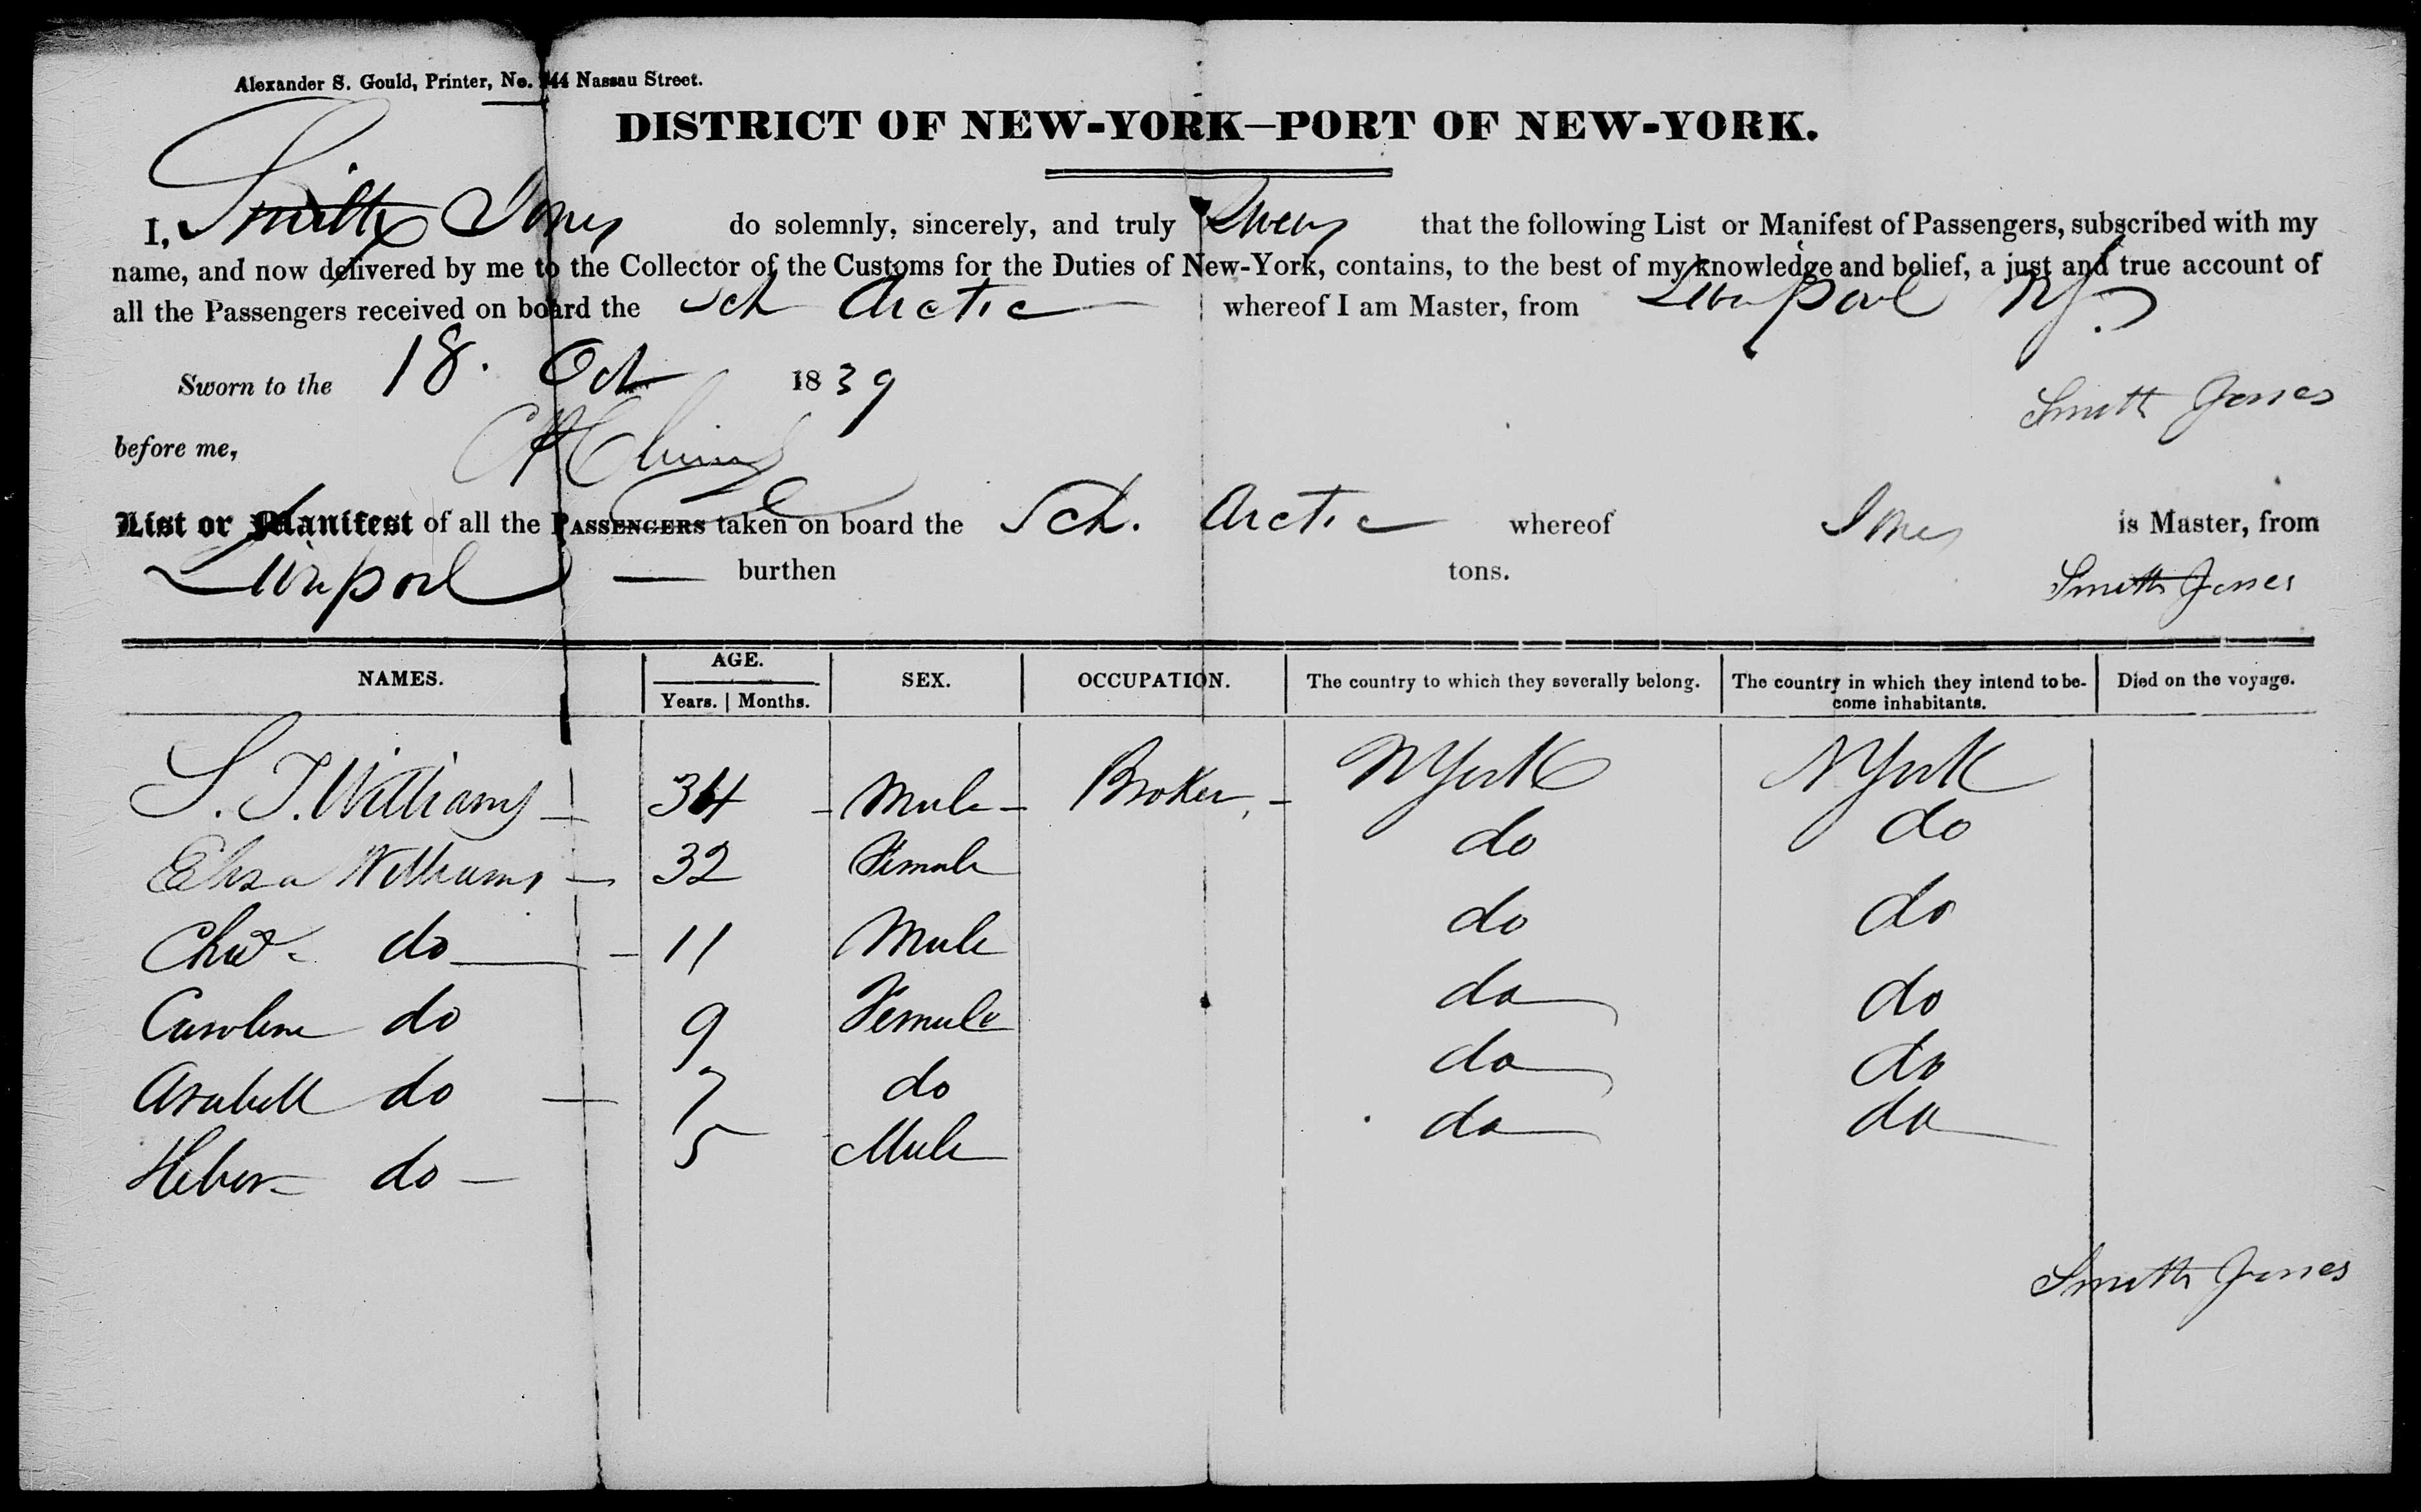 Alexander S. Gould, Printer, No. 144 Nassau Street.
DISTRICT OF NEW-YORK—PORT OF NEW-YORK.
I, Smith Jones do solemnly, sincerely, and truly Swear that the following List or Manifest of Passengers, subscribed with my
name, and now delivered by me to the Collector of the Customs for the Duties of New-York, contains, to the best of my knowledge and belief, a just and true account of
all the Passengers received on board the Sch Arctic whereof I am Master, from Liverpool
Sworn to the 18. Oct 1839
Smith Jones
before me,
List or Manifest of all the PASSENGERS taken on board the Sch. Arctic whereof Jones is Master, from
Liverpool — burthen tons.
Smith Jones
NAMES. AGE. SEX. OCCUPATION. The country to which they severally belong. The country in which they intend to be- Died on the voyage.
Years. Months. come inhabitants.
S. T. Williams — 34 — Male — Broker, — N York N York
Eliza Williams — 32 Female do do
Chas do — 11 Male do do
Caroline do 9 Female do do
Arabell do — 7 do do do
Heber do — 5 Male do do
Smith Jones